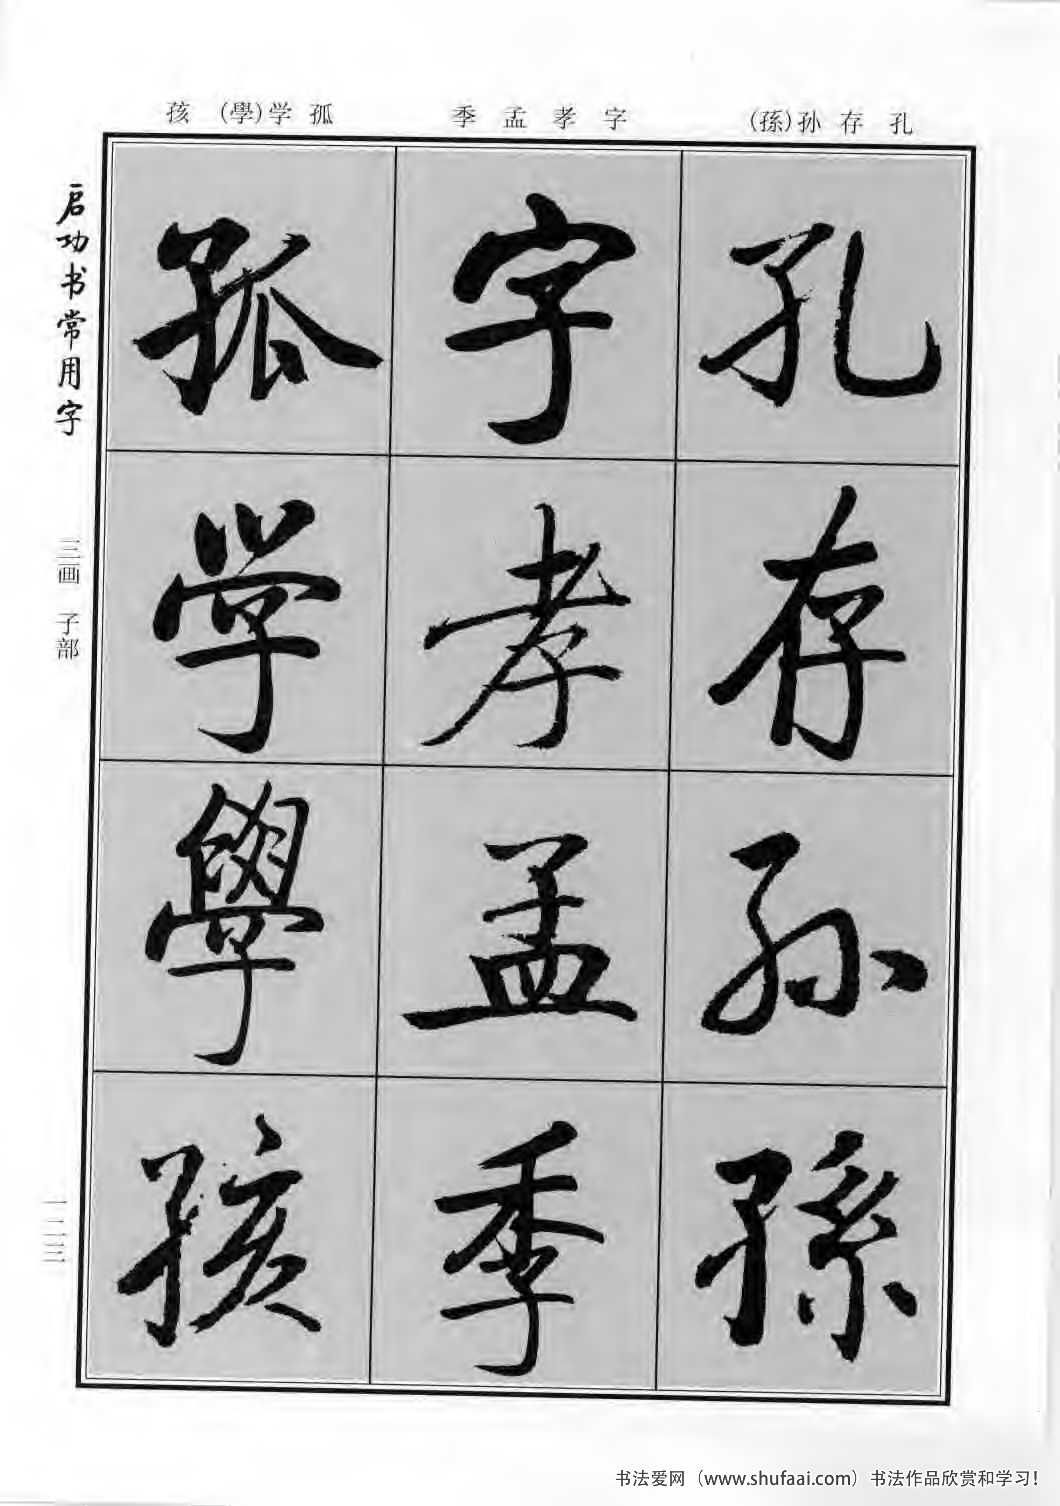 孩 (學)学 孤
季 孟 孝 字
(孫)孙 存 孔
启功书常用字
三画 子部
一二三
孔
存
孙
孫
字
孝
孟
季
孤
学
學
孩
书法爱网（www.shufaai.com）书法作品欣赏和学习！